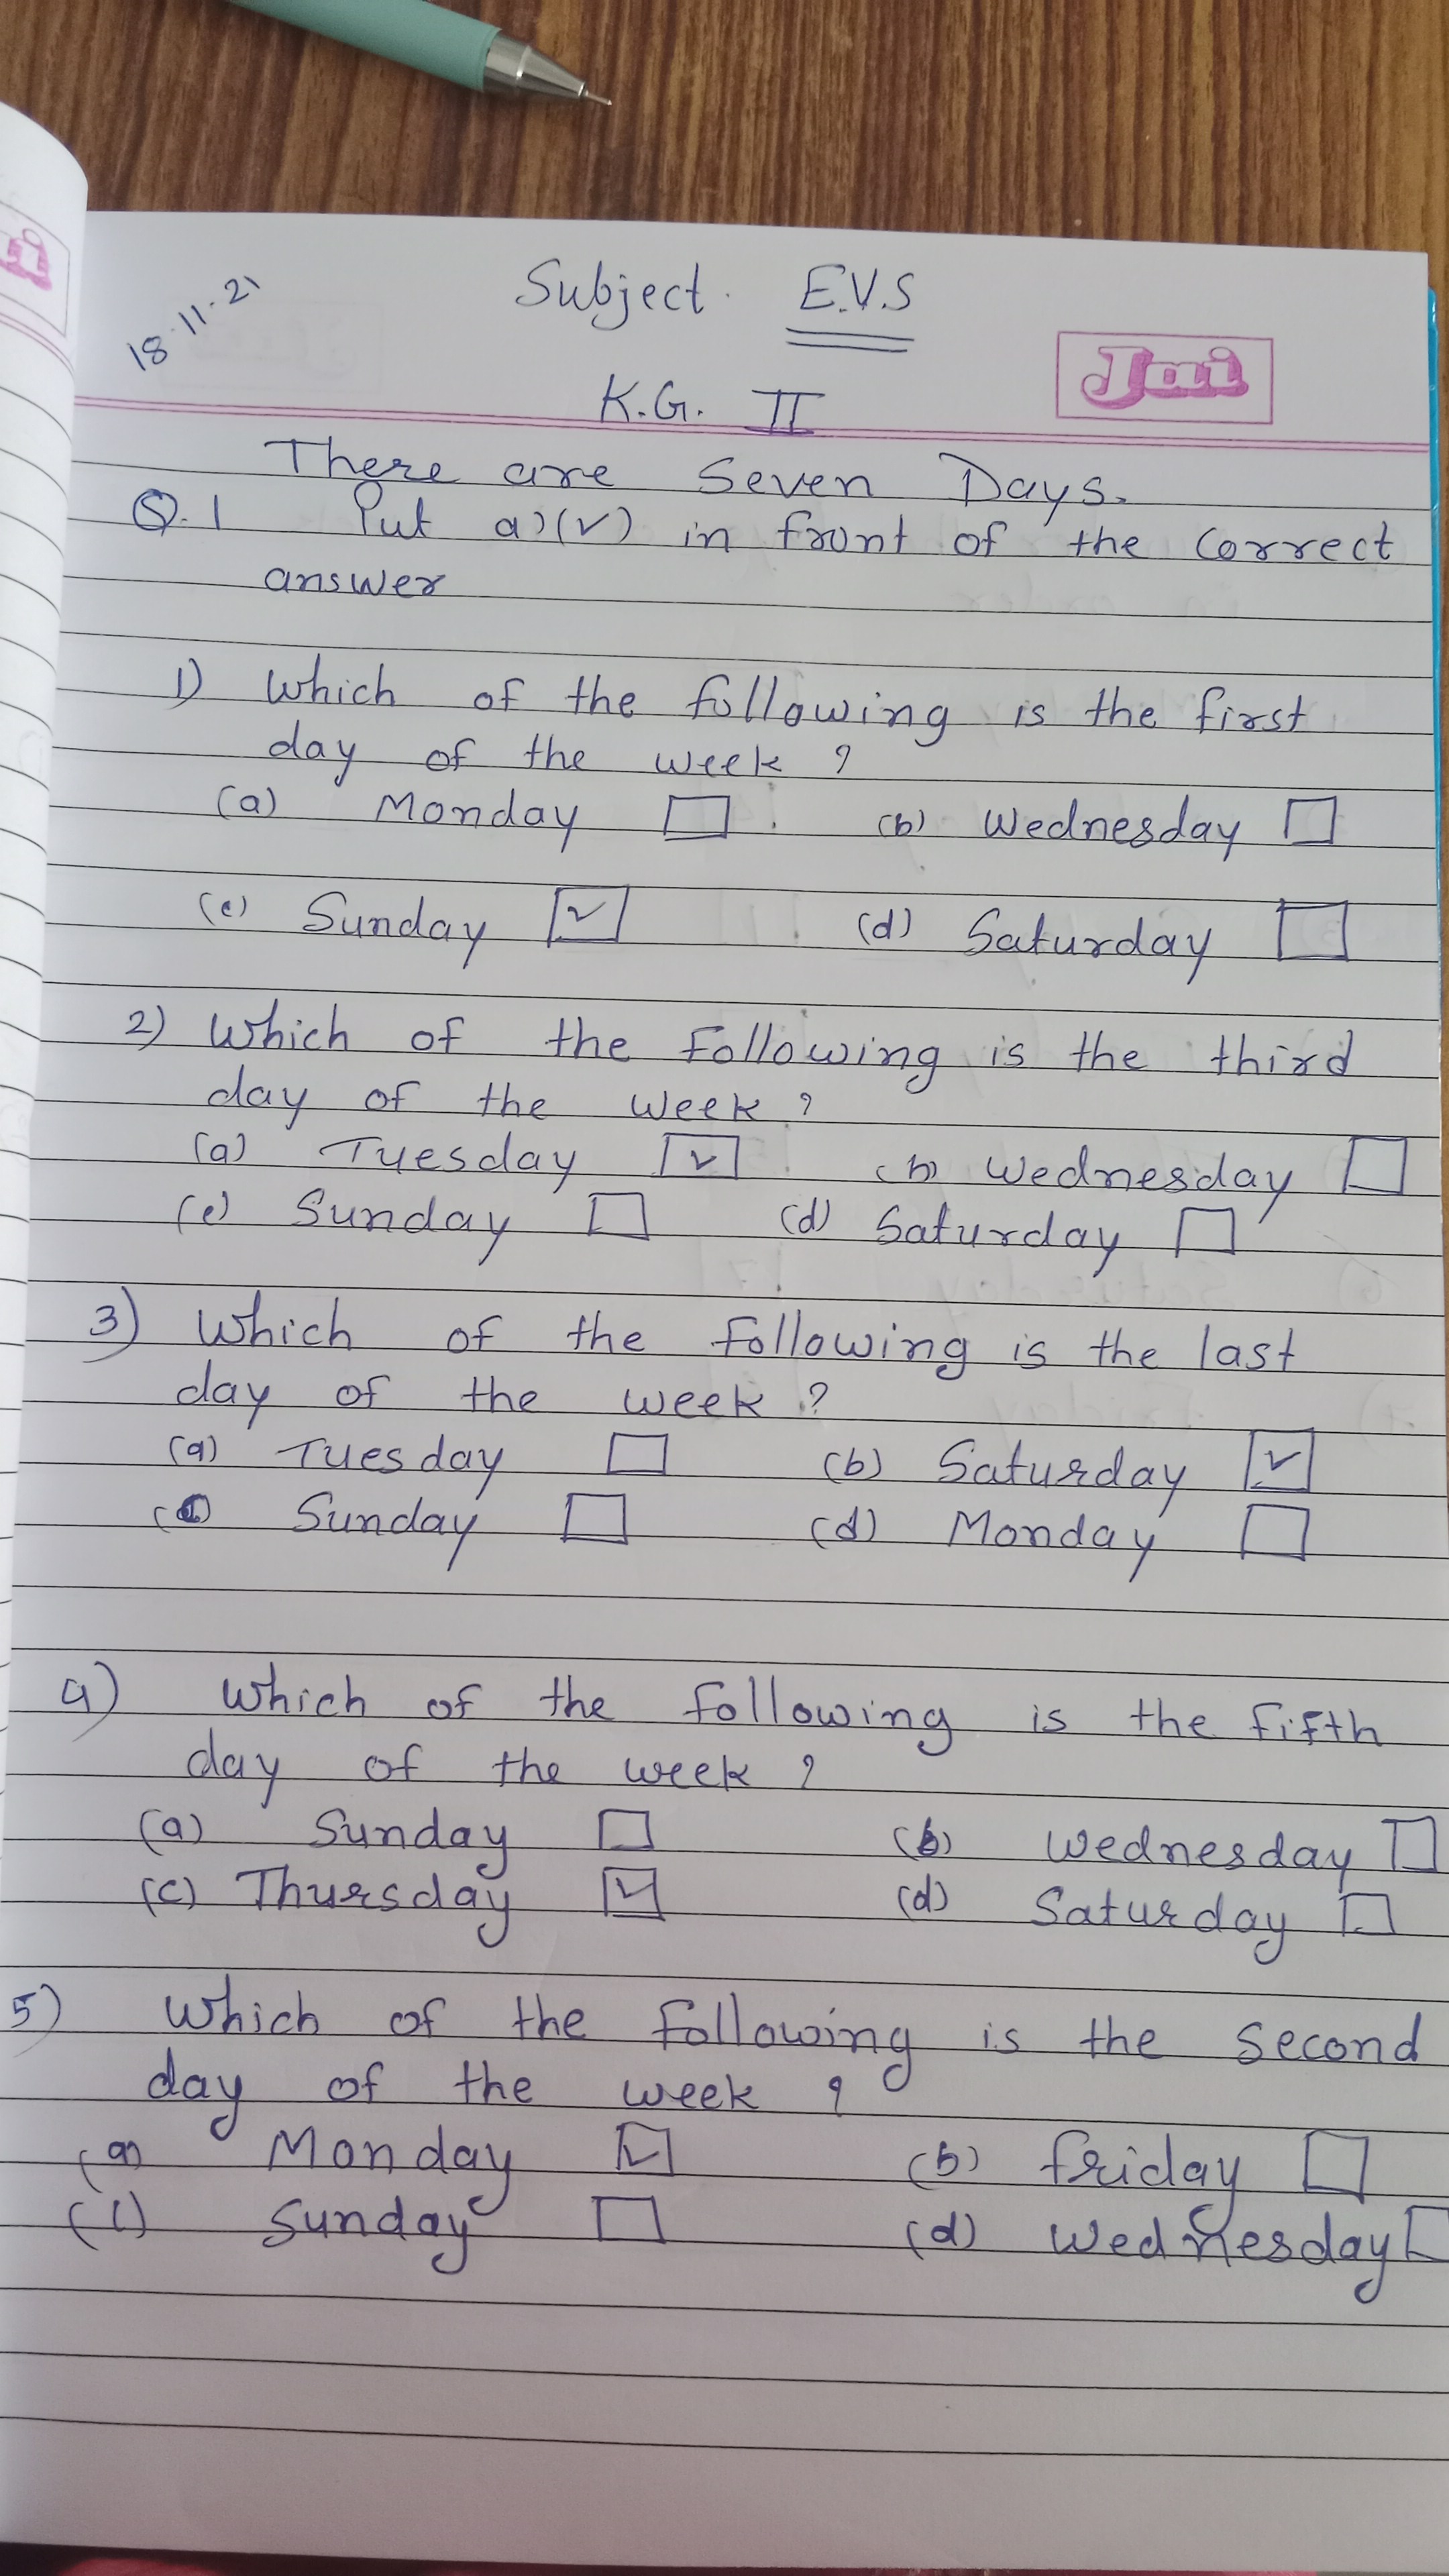 18.11.21
Subject. E.V.S
Jai
K.G. II
There are Seven Days.
Q.1 Put a)(✓) in front of the correct
answer
1) Which of the following is the first
day of the week ?
(a) Monday ☐ (b) Wednesday ☐
(c) Sunday ☑ (d) Saturday ☐
2) Which of the following is the third
day of the week ?
(a) Tuesday ☑ (b) Wednesday ☐
(c) Sunday ☐ (d) Saturday ☐
3) Which of the following is the last
day of the week ?
(a) Tuesday ☐ (b) Saturday ☑
(c) Sunday ☐ (d) Monday ☐
4) Which of the following is the fifth
day of the week ?
(a) Sunday ☐ (b) Wednesday ☐
(c) Thursday ☑ (d) Saturday ☐
5) Which of the following is the second
day of the week ?
(a) Monday ☑ (b) friday ☐
(c) Sunday ☐ (d) Wednesday ☐